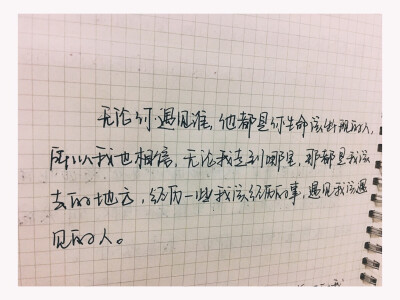 无论你遇见谁，他都是你生命该出现的人，
所以我也相信，无论我走到哪里，那都是我该
去的地方，经历一些我该经历的事，遇见我该遇
见的人。